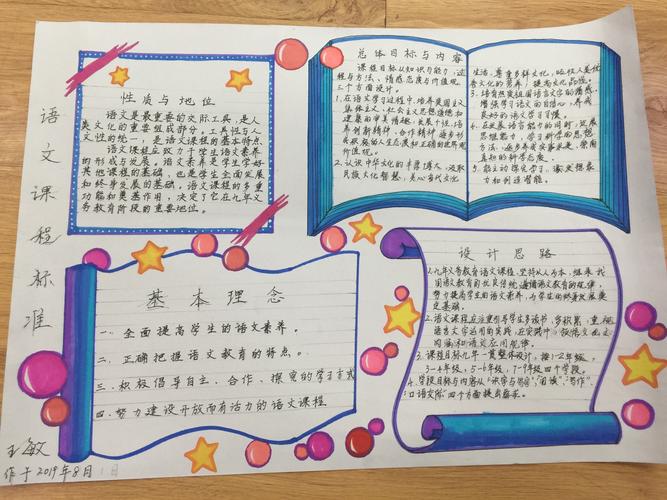 语文课程标准
性质与地位
语文是最重要的交际工具,是人
类文化的重要组成部分。工具性与人
文性的统一,是语文课程的基本特点
语文课程应致力于学生语文素养
的形成与发展。语文素养是学生学好
其他课程的基础,也是学生全面发展
和终身发展的基础。语文课程的多重
功能和奠基作用,决定了它在九年义
务教育阶段的重要地位。
总体目标与内容
课程目标从知识与能力、过
程与方法、情感态度与价值观
三个方面设计。
1.在语文学习过程中,培养爱国主义
集体主义、社会主义思想道德和
健康的审美情趣,发展个性,培
养创新精神、合作精神,逐步形
成积极的人生态度和正确的世界观
价值观。
2.认识中华文化的丰厚博大,汲取
民族文化智慧。关心当代文化
生活,尊重多样文化,吸收人类优
秀文化的营养,提高文化品位。
3.培育热爱祖国语言文字的情感,
增强学习语文的自信心,养成
良好的语文学习习惯。
4.在发展语言能力的同时,发展
思维能力,学习科学的思想
方法,逐步养成实事求是、崇尚
真知的科学态度。
5.能主动探究学习,激发想象
力和创造潜能。
基本理念
一、全面提高学生的语文素养。
二、正确把握语文教育的特点。
三、积极倡导自主、合作、探究的学习方式
四、努力建设开放而有活力的语文课程
设计思路
1.九年义务教育语文课程,坚持以人为本,继承我
国语文教育的优良传统,遵循语文教育的规律,
努力提高学生的语文素养,为学生的终身发展奠
定基础。
2.语文课程应注重引导学生多读书、多积累,重视
语言文字运用的实践,在实践中领悟文化
内涵和语文应用规律。
3.课程目标九年一贯整体设计。按1-2年级、
3-4年级、5-6年级、7-9年级四个学段。
4.学段目标与内容从"识字与写字""阅读""写作"
"口语交际"四个方面提出要求。
王敏
作于2019年8月1日